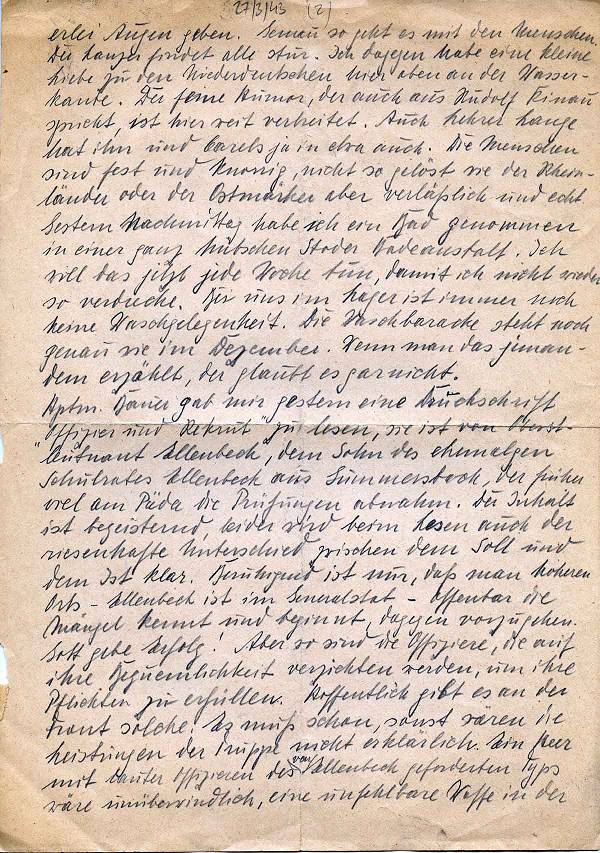 27/3/43 (2)
erlei Augen geben. Genau so geht es mit den Menschen.
Der Landser findet alle stur. Ich dagegen habe eine kleine
Liebe zu den Niederdeutschen hier oben an der Wasser-
kante. Der feine Humor, der auch aus Rudolf Kinau
spricht, ist hier weit verbreitet. Auch Lehrer Lange
hat ihn und Carels ja in etwa auch. Die Menschen
sind fest und knorrig, nicht so gelöst wie der Rhein-
länder oder der Ostmärker aber verläßlich und echt
Gestern Nachmittag habe ich ein Bad genommen
in einer ganz hübschen Stader Badeanstalt. Ich
will das jetzt jede Woche tun, damit ich nicht wieder
so verdrecke. Bei uns im Lager ist immer noch
keine Waschgelegenheit. Die Waschbaracke steht noch
genau wie im Dezember. Wenn man das jeman-
dem erzählt, der glaubt es garnicht.
Hptm. Bauer gab mir gestern eine Druckschrift
"Offizier und Rekrut" zu lesen, sie ist von Oberst-
leutnant Ellenbeck, dem Sohn des ehemalgen
Schulrates Ellenbeck aus Gummersbach, der früher
viel am Päda die Prüfungen abnahm. Der Inhalt
ist begeisternd, leider wird beim Lesen auch der
riesenhafte Unterschied zwischen dem Soll und
dem Ist klar. Beruhigend ist nur, daß man höheren
Orts - Ellenbeck ist im Generalstab - offenbar die
Mängel kennt und beginnt, dagegen vorzugehen.
Gott gebe Erfolg! Aber wo sind die Offiziere, die auf
ihre Bequemlichkeit verzichten werden, um ihre
Pflichten zu erfüllen. Hoffentlich gibt es an der
Front solche! Es muß schon, sonst wären die
Leistungen der Truppe nicht erklärlich. Ein Heer
mit lauter Offizieren des von Ellenbeck geforderten Typs
wäre unüberwindlich, eine unfehlbare Waffe in der